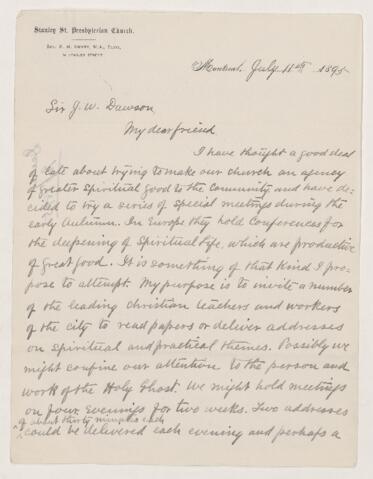 Stanley St. Presbyterian Church.
Montreal, July 11th 1895
Sir J. W. Dawson,
My dear friend,
I have thought a good deal
of late about trying to make our church an agency
of greater Spiritual good to the Community and have de-
cided to try a series of special meetings during the
early Autumn. In Europe they hold Conferences for
the deepening of Spiritual life, which are productive
of great good. It is something of that kind I pro-
pose to attempt. My purpose is to invite a number
of the leading christian teachers and workers
of the city to read papers or deliver addresses
on Spiritual and practical themes. Possibly we
might confine our attention to the person and
work of the Holy Ghost. We might hold meetings
on four evenings for two weeks. Two addresses
of about thirty minutes each
could be delivered each evening and perhaps a